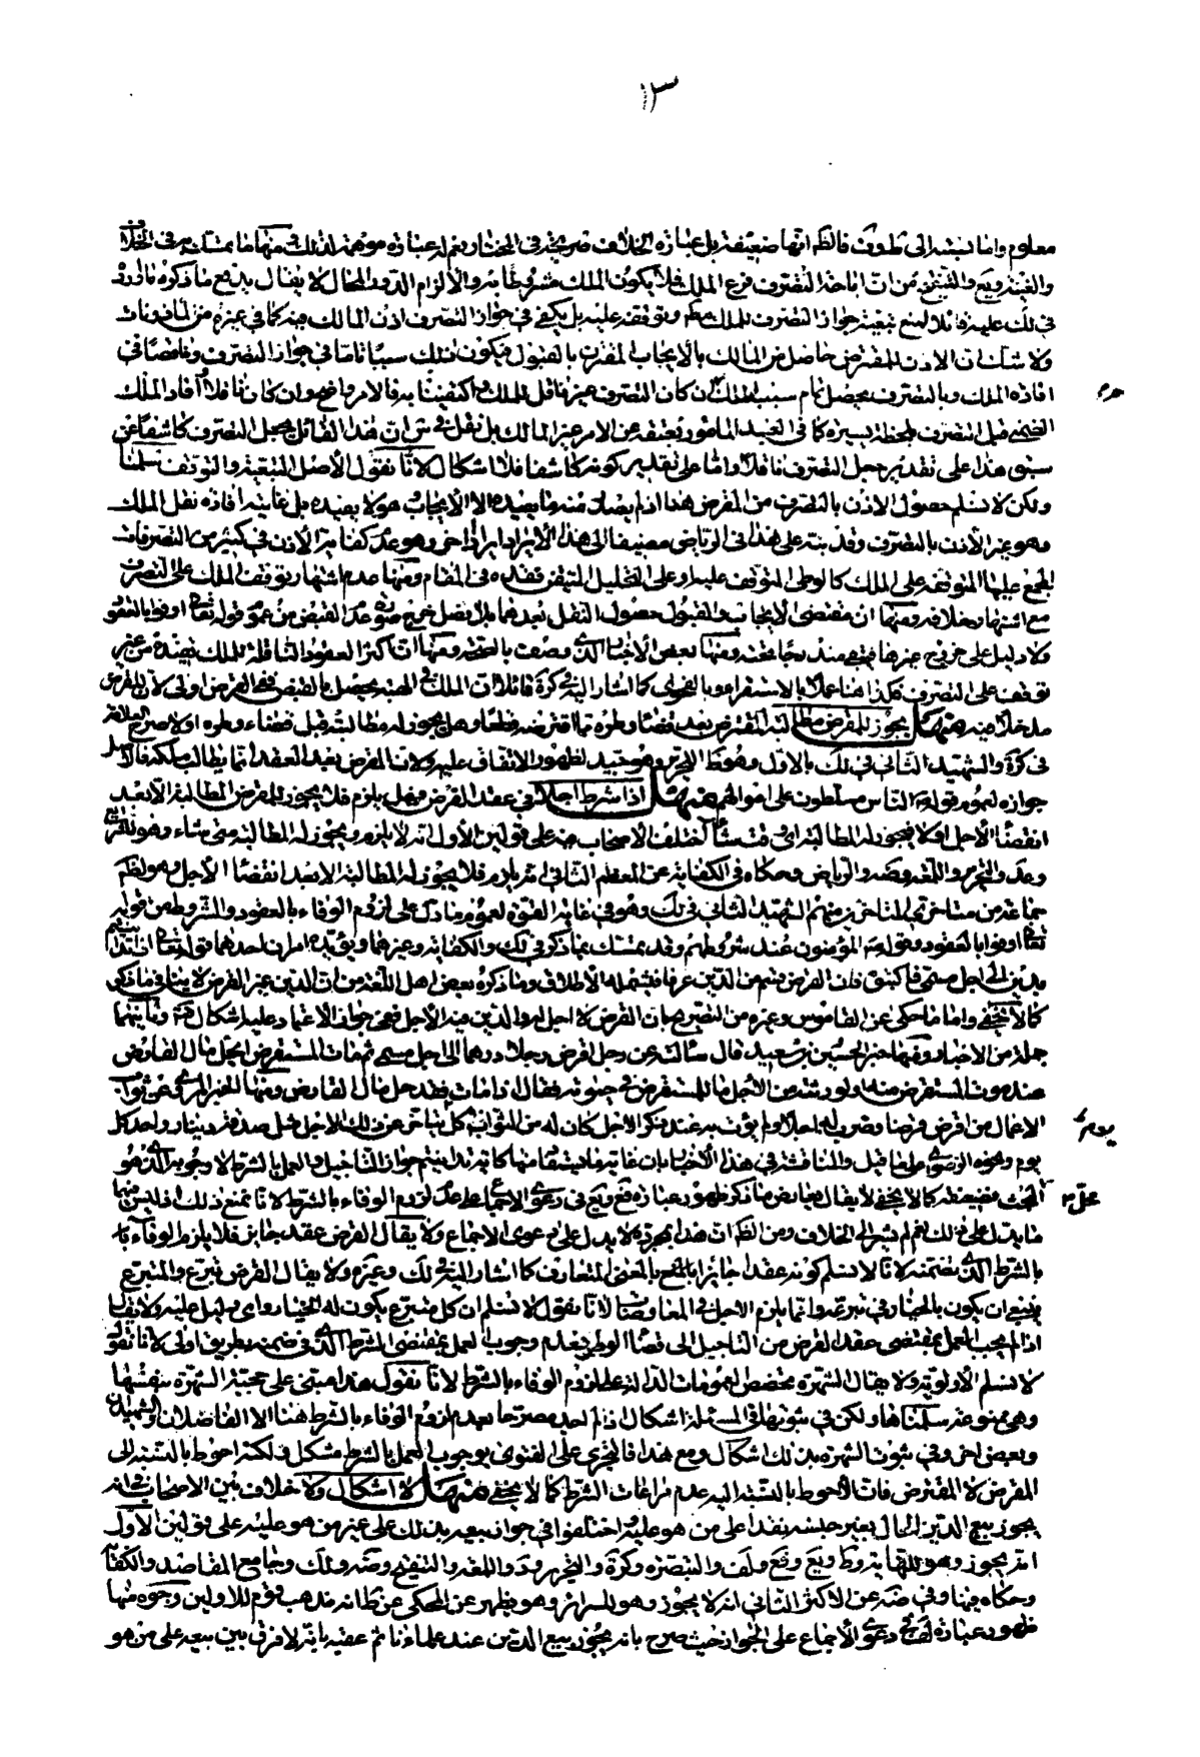 ١٣
معلوم واما نسبته الى ط وف فالظ انها ضعيفة بل عبارة الخلاف صريحة في المختار نعم له عبارة موهمة لذلك
والقيد ويع والتنقيح من ان اباحة التصرف فرع الملك فلا يكون الملك مشروطا به والا لزم الدور المحال لا يقال يدفع ما ذكروه ما اورد
في لك عليه قائلا بمنع تبعية جواز التصرف للملك وتوقفه عليه بل يكفي في جواز التصرف اذن المالك فيه كما في غيره من المأذونات
ولا شك ان الاذن للمقترض حاصل من المالك بالايجاب المقترن بالقبول فيكون ذلك سببا تاما في جواز التصرف وناقصا في
افادة الملك وبالتصرف يحصل تمام سبب الملك ان كان التصرف غير ناقل للملك واكتفينا به فالامر واضح وان كان ناقلا افاد الملك
الضمني قبل التصرف بلحظة يسيرة كما في العبد المأمور بعتقه عن الامر غير المالك بل نقل في س ان هذا القائل يجعل التصرف كاشفا عن
سبق هذا على تقدير جعل التصرف ناقلا واما على تقدير كونه كاشفا فلا اشكال لانا نقول الاصل التبعية والتوقف سلمنا
ولكن لا نسلم حصول الاذن بالتصرف من المقرض هنا اذ لم يصدر منه ما يفيده الا الايجاب هو لا يفيده بل غايته افادة نقل الملك
وهو غير الاذن بالتصرف وقد نبه على هذا في الرياض مضيفا الى هذا الايراد ايرادا اخر وهو عدم كفاية الاذن في كثير من التصرفات
المجمع عليها المتوقفة على الملك كالوطي المتوقف عليه او على التحليل المتيقن فقده في المقام ومنها عدم اشتهار توقف الملك على التصرف
مع اشتهار خلافه ومنها ان مقتضى الايجاب والقبول حصول النقل بعدهما بلا فصل خرج صورة عدم القبض من عموم قوله تعالى اوفوا بالعقود
ولا دليل على خروج غيرها فيبقى مندرجا تحته ومنها بعض الاخبار الذي وصف بالصحة ومنها ان اكثر العقود الناقلة للملك يفيده من غير
توقف على التصرف فكذا هنا عملا بالاستقراء وبالفحوى كما اشار اليه في كرة قائلا ان الملك في الهبة يحصل بالقبض ففي القرض اولى لان للعوض
مدخلا فيه منها يجوز للمقرض مطالبة المقترض بعد قضاء وطره مما اقترضه قطعا وهل يجوز له مطالبته قبل قضاء وطره اولا صرح العلامة
في كرة والشهيد الثاني في لك بالاول وهو ظ التحرير وهو جيد لظهور الاتفاق عليه ولان المقرض بعد العقد انما يطالب بملكه فالاصل
جوازه لعموم قوله الناس مسلطون على اموالهم منها اذا شرط اجلا في عقد القرض فهل يلزم فلا يجوز للمقرض المطالبة الا بعد
انقضاء الاجل او لا فيجوز له المطالبة اي وقت شاء اختلف الاصحاب فيه على قولين الاول انه لا يلزم ويجوز له المطالبة متى شاء وهو للشرايع
وعد والتحرير واللمعة وضه والرياض وحكاه في الكفاية عن المعظم الثاني انه يلزم فلا يجوز له المطالبة الا بعد انقضاء الاجل وهو لظ
جماعة من متأخري المتأخرين منهم الشهيد الثاني في لك وهو في غاية القوة لعموم ما دل على لزوم الوفاء بالعقود والشروط من قوله
تعالى اوفوا بالعقود وقوله المؤمنون عند شروطهم وقد تمسك بما ذكر في لك والكفاية وغيرهما ويؤيده امران احدهما قوله تعالى اذا تداينتم
بدين الى اجل مسمى فاكتبوه فان القرض قسم من الدين عرفا فيشمله الاطلاق وما ذكره بعض اهل اللغة من ان الدين غير القرض لا ينافي ما ذكر
كما لا يخفى واما ما حكي عن القاموس وغيره من التصريح بان القرض لا اجل له والدين فيه الاجل ففي جواز الاعتماد عليه اشكال وثانيهما
جملة من الاخبار ومنها خبر الحسين بن سعيد قال سألته عن رجل اقرض رجلا دراهم الى اجل مسمى ثم مات المستقرض ايحل مال القارض
عند موت المستقرض منه او لورثته من الاجل ما للمستقرض في حيوته فقال اذا مات فقد حل مال القارض ومنها الخبر المروي عن ثواب
الاعمال من اقرض قرضا وضرب له اجلا ولم يؤت به عند ذلك الاجل كان له من الثواب في كل يوم يتأخر عن ذلك الاجل مثل صدقة دينار واحد كل
يوم ونحوه الرضوي على ما قيل والمناقشة في هذه الاخبار بان غاية ما يستفاد منها جواز التأجيل والعمل بالشرط لا وجوبه الذي هو
البحث ضعيفة كما لا يخفى لا يقال يعارض ما ذكر ظهور عبارة في دعوى الاجماع على عدم لزوم الوفاء بالشرط لانا نمنع ذلك اذ ليس فيها
ما يدل على ذلك نعم لم يشر الى الخلاف ومن الظ ان هذا بمجرده لا يدل على دعوى الاجماع ولا يقال القرض عقد جايز فلا يلزم الوفاء به
بالشرط الذي يتضمنه لانا لا نسلم كونه عقدا جائزا بالمعنى المتعارف كما اشار اليه في لك وغيره ولا يقال القرض تبرع والمتبرع
ينبغي ان يكون بالخيار في تبرعه وانما يلزم الاجل في المعاوضات لانا نقول لا نسلم ان كل متبرع يكون له الخيار واي دليل عليه ولا يقال
اذا لم يجب العمل بمقتضى عقد القرض من التأجيل الى قضاء الوطر فعدم وجوب العمل بمقتضى الشرط الذي في ضمنه بطريق اولى لانا نقول
لا نسلم الاولوية ولا يقال الشهرة مخصص العمومات الدالة على لزوم الوفاء بالشرط لانا نقول هذا مبتنى على حجية الشهرة بنفسها
وهي ممنوعة سلمناها ولكن في ثبوتها في المسئلة اشكال اذ لم اجد مصرحا بعدم لزوم الوفاء بالشرط هنا الا الفاضلان والشهيدان
وبعض اخر وفي ثبوت الشهرة بذلك اشكال ومع هذا فالجرئ على الفتوى بوجوب العمل بالشرط مشكل ولكنه احوط بالنسبة الى
المقرض لا المقترض فان الاحوط بالنسبة اليه عدم مراعات الشرط كما لا يخفى منها لا اشكال ولا خلاف بين الاصحاب في انه
يجوز بيع الدين الحال بغير جنسه نقدا على من هو عليه واختلفوا في جواز بيعه بذلك على غير من هو عليه على قولين الاول
انه يجوز وهو للنهاية وط ويع وفع ولف والتبصرة وكرة والتحرير وعد واللمعة والتنقيح وضه ولك وجامع المقاصد والكفاية
وحكاه فيها وفي ضه عن الاكثر الثاني انه لا يجوز وهو للسرائر وهو ظهر عن المحكي عن ط انه مذهب قوم للاولين وجوه منها
ظهور عبارة في دعوى الاجماع على الجواز حيث صرح بانه يجوز بيع الدين عند علمائنا ثم عقبه بانه لا فرق بين بيعه على من هو